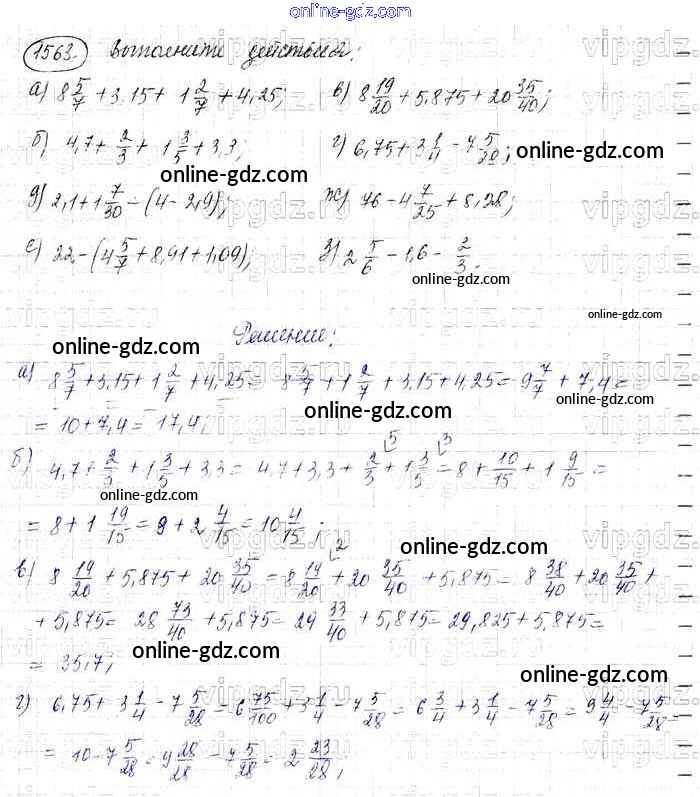 online-gdz.com
1563. Выполните действия:
а) 8 5/7 + 3,15 + 1 2/7 + 4,25; в) 8 19/20 + 5,875 + 20 35/40;
б) 4,7 + 2/3 + 1 3/5 + 3,3; г) 6,75 + 3 1/4 - 7 5/28; online-gdz.com
online-gdz.com
д) 2,1 + 1 7/30 - (4 - 2,9); ж) 76 - 4 7/25 + 8,28;
е) 22 - (4 5/7 + 8,91 + 1,09); з) 2 5/6 - 1,6 - 2/3.
online-gdz.com
online-gdz.com
Решение:
online-gdz.com
а) 8 5/7 + 3,15 + 1 2/7 + 4,25 = 8 5/7 + 1 2/7 + 3,15 + 4,25 = 9 7/7 + 7,4 =
online-gdz.com
= 10 + 7,4 = 17,4; online-gdz.com
б) 4,7 + 2/3 + 1 3/5 + 3,3 = 4,7 + 3,3 + 2/3 + 1 3/5 = 8 + 10/15 + 1 9/15 =
online-gdz.com
= 8 + 1 19/15 = 9 + 2 4/15 = 10 4/15;
online-gdz.com
в) 8 19/20 + 5,875 + 20 35/40 = 8 19/20 + 20 35/40 + 5,875 = 8 38/40 + 20 35/40 +
+ 5,875 = 28 73/40 + 5,875 = 29 33/40 + 5,875 = 29,825 + 5,875 =
= 35,7; online-gdz.com
online-gdz.com
г) 6,75 + 3 1/4 - 7 5/28 = 6 75/100 + 3 1/4 - 7 5/28 = 6 3/4 + 3 1/4 - 7 5/28 = 9 4/4 - 7 5/28
= 10 - 7 5/28 = 9 28/28 - 7 5/28 = 2 23/28;
online-gdz.com